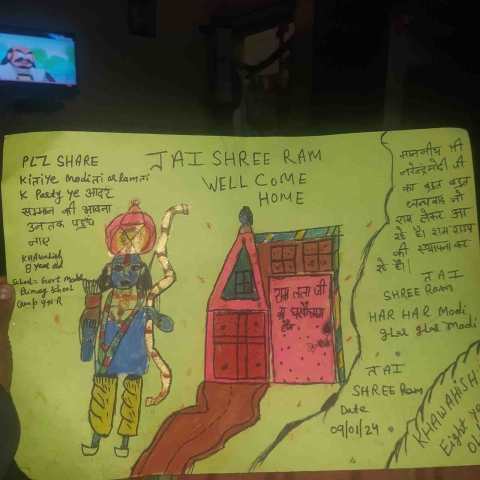 PLZ SHARE
Kijiye Modi ji or Ram ji
K Party ye आदर
सम्मान की भावना
उन तक पहुँच
जाए
KHAwahish
8 year old
School = Govt Model
Primary School
Camp
JAI SHREE RAM
WELL COME
HOME
राम लला जी
माननीय श्री
नरेन्द्र मोदी जी
का बहुत बहुत
धन्यवाद जो
राम लेकर आ
रहे है। राम राज्य
की स्थापना कर
रहे है।
JAI
SHREE Ram
HAR HAR Modi
ghar ghar Modi
JAI
SHREE Ram
Date
09/01/24
KHAWAHISH
Eight ye
Ol